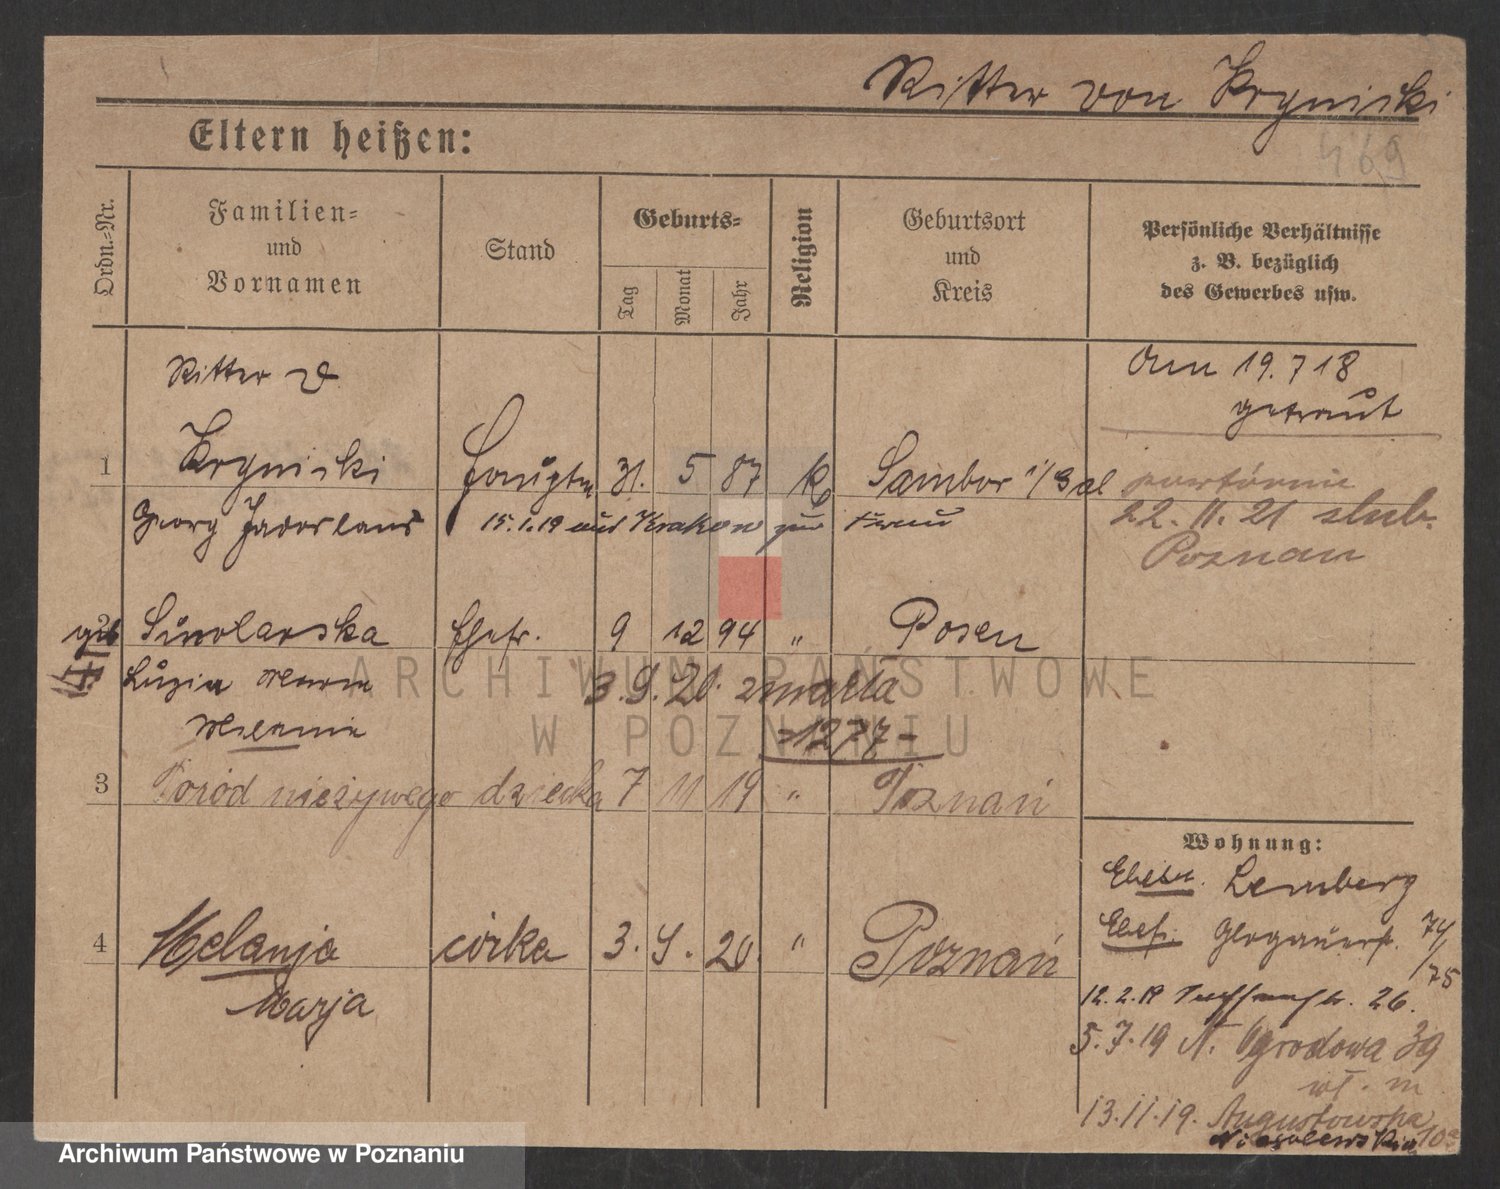 Ritter von Kryniski
469
Eltern heißen:
Ordn.-Nr.
Familien-
und
Vornamen
Stand
Geburts-
Tag
Monat
Jahr
Religion
Geburtsort
und
Kreis
Persönliche Verhältnisse
z. B. bezüglich
des Gewerbes usw.
Ritter v
Am 19.7 18
getraut
1 Kryniski Hauptm 31. 5 87 K Sambor i/Gal
Georg Jaroslaus 15.1.19 aus Krakow zur Frau
22. 11. 21 slub.
Poznan
2 geb Smolarska Ehefr. 9 12 94 " Posen
Luzia Maria 3.9.20. zmarła
Melanie
=1277-
3 Poród nieżywego dziecka 7 11 19 " Poznań
4 Melanja córka 3. 9. 20. " Poznań
Marja
Wohnung:
Ehem. Lemberg
Ehef. Glogauerstr. 74/75
12.2.19 26.
5.7.19 N. Ogrodowa 39
wł. m
13.11.19. Augustowska
Niegolewskich 10
ARCHIWUM PAŃSTWOWE
W POZNANIU
Archiwum Państwowe w Poznaniu